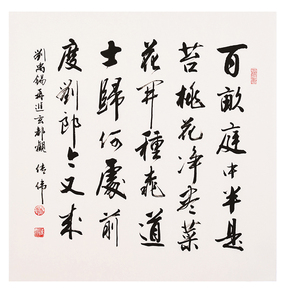 百畝庭中半是
苔桃花净尽菜
花开種桃道
士歸何處前
度劉郎今又来
劉禹錫再遊玄都觀